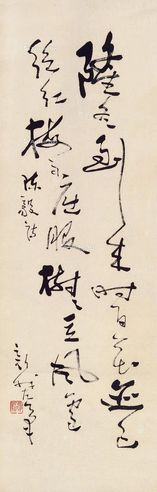 隆冬到来时百花迹已
绝红梅不屈服树々立风雪
陈毅诗
新我左笔